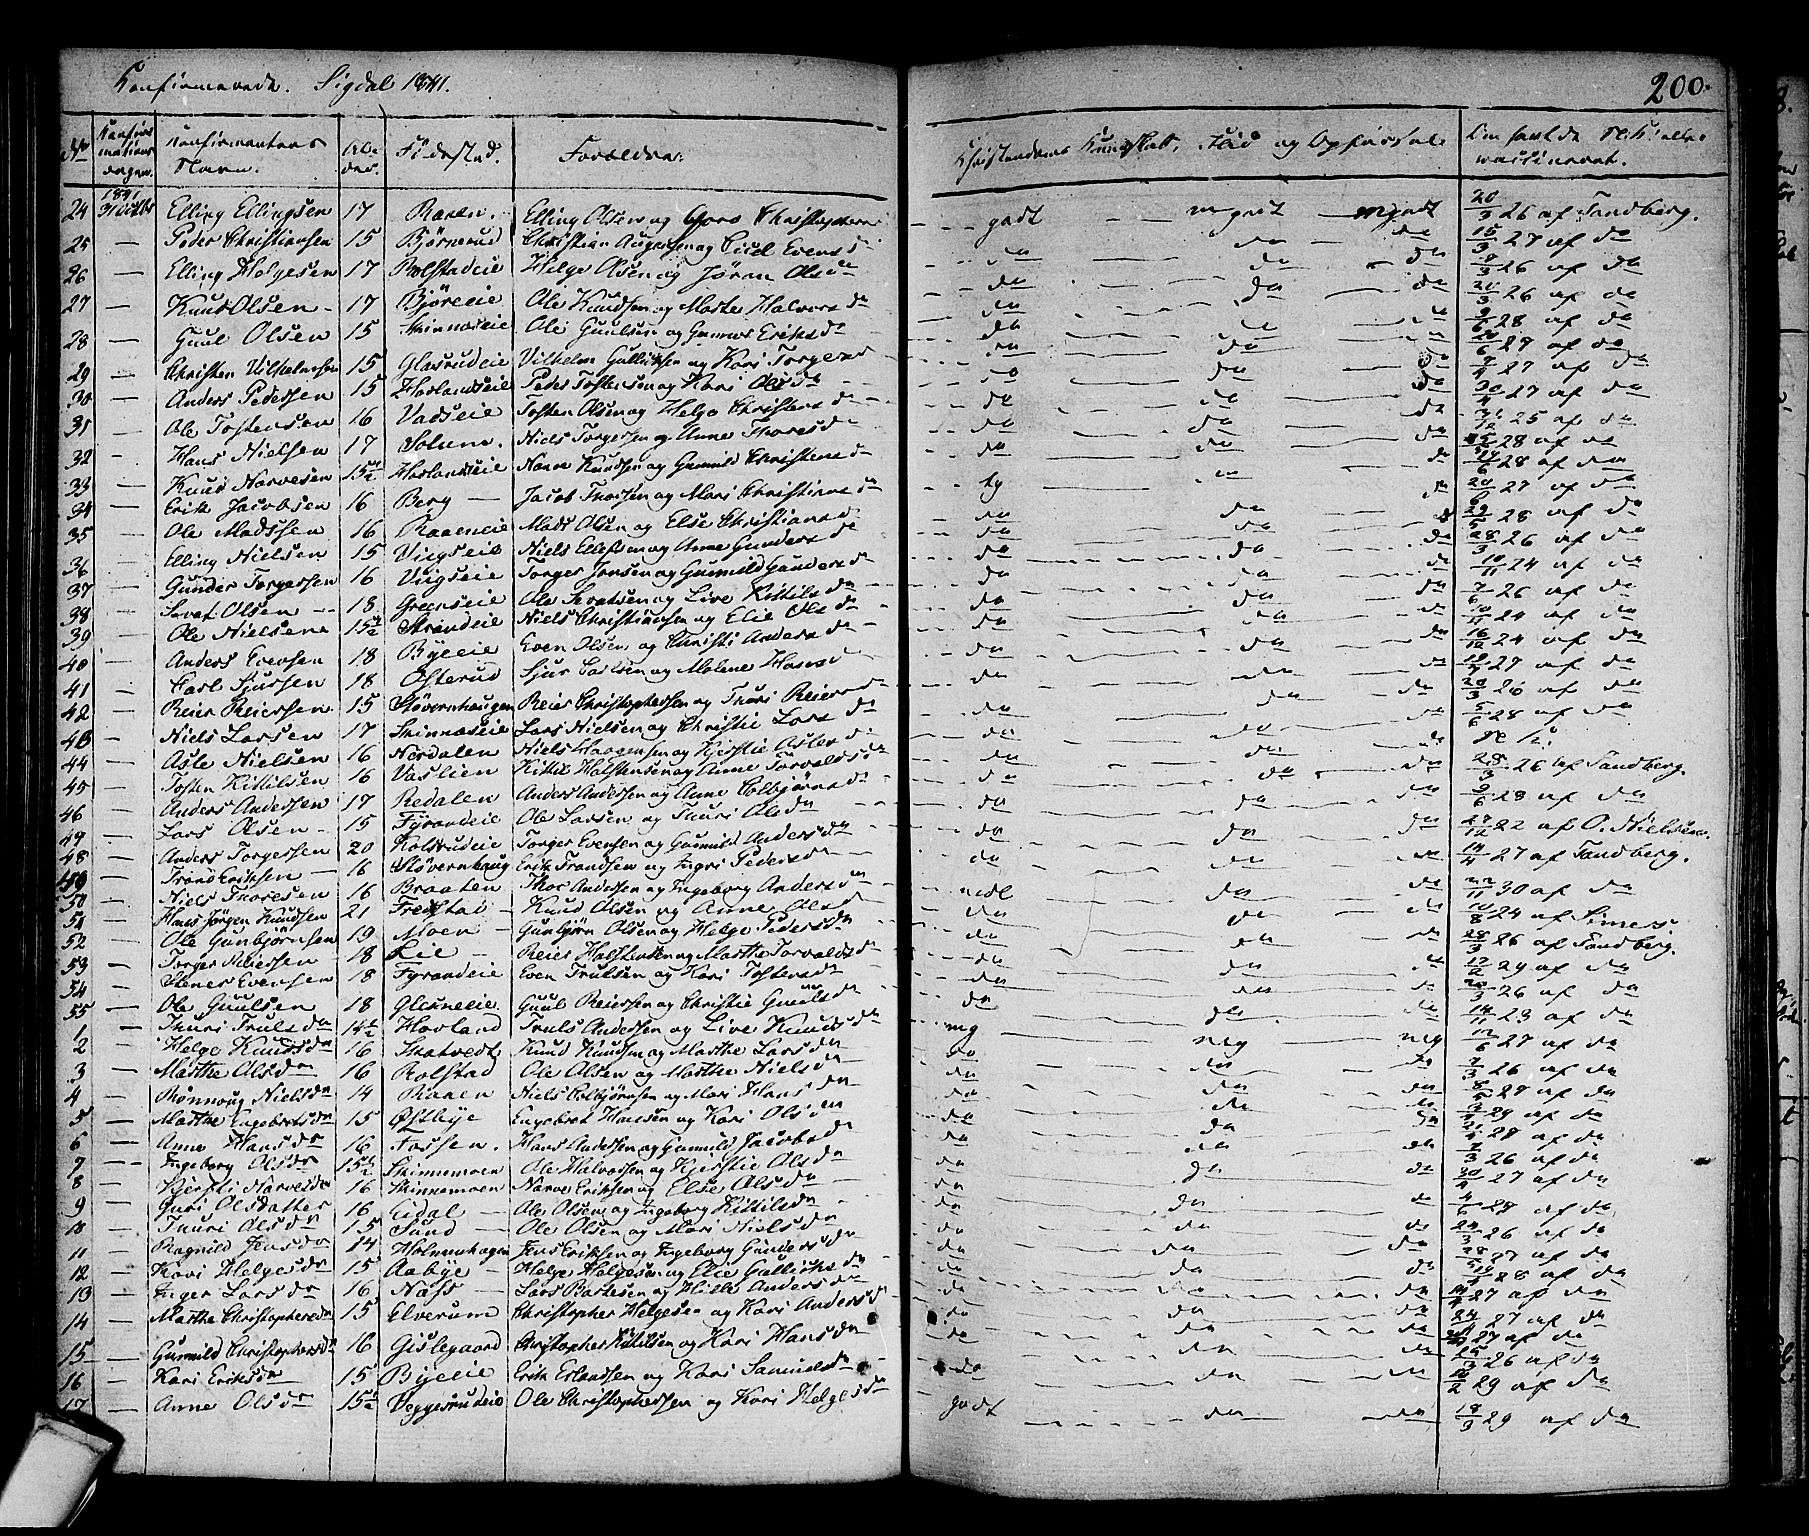 Konfirmerede. Sigdal 1841.
200.
No
Konfirmations dagen.
Konfirmantens Navn.
Alder.
Födested.
Forældre.
Christendoms Kundskab, Flid og Opførsel
Om havde N. K. eller vaccineret.
24 1841 31 Octbr Elling Ellingsen 17 Raaen. Elling Olsen og Goro Christophers godt m godt m godt 20/3 26 af Tandberg.
25 — Peder Christiansen 15 Björnerud Christian Augensen og Sisel Evens d do do do 15/3 27 af do
26 — Elling Helgesen 17 Rolstadeie Helge Olsen og Jören Ols dr do do do 26 af do
27 — Knud Olsen 17 Björeeie Ole Knudsen og Marte Halvors dr do do do 26 af do
28 — Guul Olsen 15 Skinnæseie Ole Guulsen og Gunnor Eriks dr do do do 28 af do
29 — Christen Vilhelmsen 15 Glasrudeie Vilhelm Gulliksen og Kari Torgers d do do do 27 af do
30 — Anders Pedersen 15 Hovlandseie Peder Tostensen og Kari Ols dr do do do 27 af do
31 — Ole Tostensen 16 Vadseie Tosten Olsen og Helge Christens d do do do 27 af do
32 — Hans Nielsen 17 Solum. Niels Torgersen og Anne Thores dr do do do 25 af do
33 — Knud Narvesen 15 1/2 Hovlandseie Narve Knudsen og Gunnild Christens dr do do do 28 af do
34 — Erik Jacobsen 16 Berg Jacob Thorsen og Mari Christians dr tg do 28 af do
35 — Ole Madsen 16 Raaeneie Mads Olsen og Else Christians d do do do 27 af do
36 — Elling Nielsen 15 Viigseie Niels Ellefsen og Anne Gunders d do do do 28 af do
37 — Gunder Torgersen 16 Viigseie Torger Jonsen og Gunnild Gunders d do do do 26 af do
38 — Sevat Olsen 18 Greenseie Ole Sevatsen og Live Kittils dr do do do 24 af do
39 — Ole Nielsen 15 1/2 Strandeie Niels Christiansen og Elie Ols dr do do do 26 af do
40 — Anders Evensen 18 Byeeie Even Olsen og Christi Anders d do do do 24 af do
41 — Carl Sjursen 18 Österud Sjur Carlsen og Malene Hans d do do do 24 af do
42 — Reier Reiersen 15 Stövernhaugen Reier Christophersen og Thuri Reiers d do do do 27 af do
43 — Niels Larsen 17 Skinnæseie Lars Nielsen og Christie Lars dr do do do 26 af do
44 — Asle Nielsen 16 Nerdalen Niels Haagensen og Kjerstie Asles d do do do 28 af do
45 — Tosten Kittilsen 16 Vaslien Kittil Halstensen og Anne Torvalds dr do do do
46 — Anders Andersen 17 Redalen Anders Andersen og Anne Colbjörns d do do do 28/3 26 af Tandberg.
47 — Lars Olsen 15 Fyrandeie Ole Larsen og Thuri Ols dr do do do 28 af do
48 — Anders Torgersen 20 Kolsrudeie Torger Evensen og Gunnild Anders dr do do do 27/12 22 af O. Nielsen.
49 — Trond Eriksen 16 Stövernhaug Erik Trondsen og Ingri Peders d do do do 14/4 27 af Tandberg.
50 — Niels Thoresen 16 Braaten Thor Andersen og Ingeborg Anders dr do do 30 af do
51 — Hans Jörgen Knudsen 21 Knud Olsen og Anne Ols d do do do 10/8 24 af Simers.
52 — Ole Gunbjörnsen 19 Moen Gunbjörn Olsen og Helge Peders dr do do do 28/3 26 af Tandberg.
53 — Torger Reiersen 18 Lie Reier Halstensen og Marthe Torvalds dr do do do 29 af do
54 — Stener Evensen 18 Fyrandeie Even Trulsen og Kari Tostens d do do do 26 af do
55 — Ole Guulsen 18 Glesneeie Guul Reiersen og Christie Guuls dr do do do 23 af do
1 — Thuri Truls dr 14 1/2 Hovland Truls Andersen og Live Knuds dr mg meg meg 12/6 27 af do
2 — Helge Knuds dr 16 Skatvedt Knud Knudsen og Marthe Lars dr do do do 7/3 26 af do
3 — Marthe Ols dr 16 Rolstad Ole Olsen og Marthe Niels d do do do 27 af do
4 — Rönnoug Niels dr 14 Raaen Niels Colbjörnsen og Mari Hans d do do do 29 af do
5 — Marthe Engebrets dr 15 Östbye Engebret Hansen og Kari Ols dr do do do 28 af do
6 — Anne Hans dr 16 Fossen. Hans Andersen og Gunnild Jacobs d do do do 26 af do
7 — Ingeborg Ols dr 15 1/2 Skinnemoen Ole Halvorsen og Kjerstie Ols dr do do do 27 af do
8 — Kjersti Narves dr 16 Skinnemoen Narve Eriksen og Else Ols dr do do do 28 af do
9 — Guri Olsdatter 16 Eidal Ole Olsen og Ingeborg Kittils dr do do do 26 af do
10 — Thuri Ols dr 15 Sund Ole Olsen og Mari Niels dr do do do 27 af do
11 — Ragnild Jens dr 14 Holmenhagen Jens Eriksen og Ingeborg Gunders dr do do do 28 af do
12 — Kari Helges dr 15 Aabye Helge Helgesen og Elie Gulliks dr do do do 27 af do
13 — Inger Lars dr 16 Næss Lars Bartesen og Hille Anders dr do do do 27 af do
14 — Marthe Christophers dr 15 Elverum Christopher Helgesen og Kari Anders d do do do 27 af do
15 — Gunnild Christophers dr 16 Gislegaard Christopher Kittilsen og Kari Hans dr do do do 26 af do
16 — Kari Eriks dr 15 Byeeie Erik Erlandsen og Kari Samuels dr do do do 29 af do
17 — Anne Ols dr 15 1/2 Veggesrudeie Ole Christophersen og Kari Helges dr godt do do 18/3 29 af do